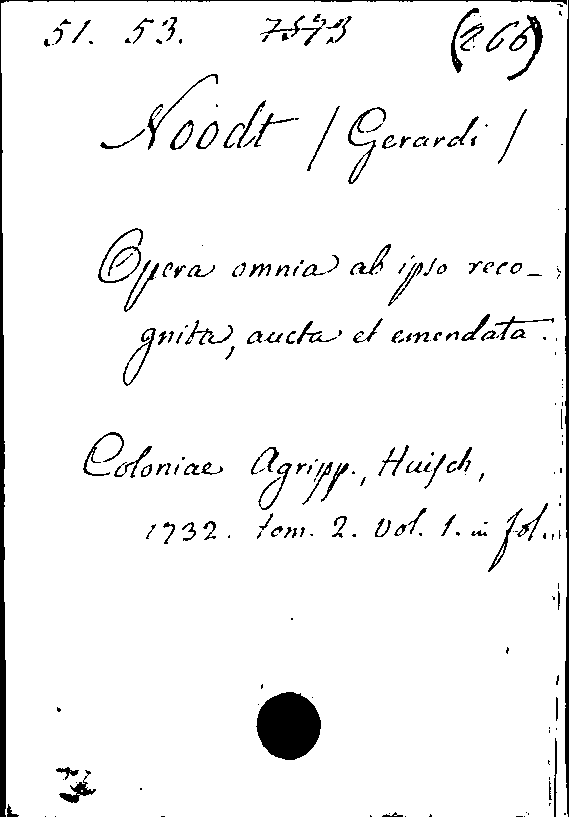 51. 53. 7573 (266)
Noodt / Gerardi /
Opera omnia ab ipso reco-
gnita, aucta et emendata.
Coloniae Agripp., Huisch,
1732. tom. 2. Vol. 1. in fol.